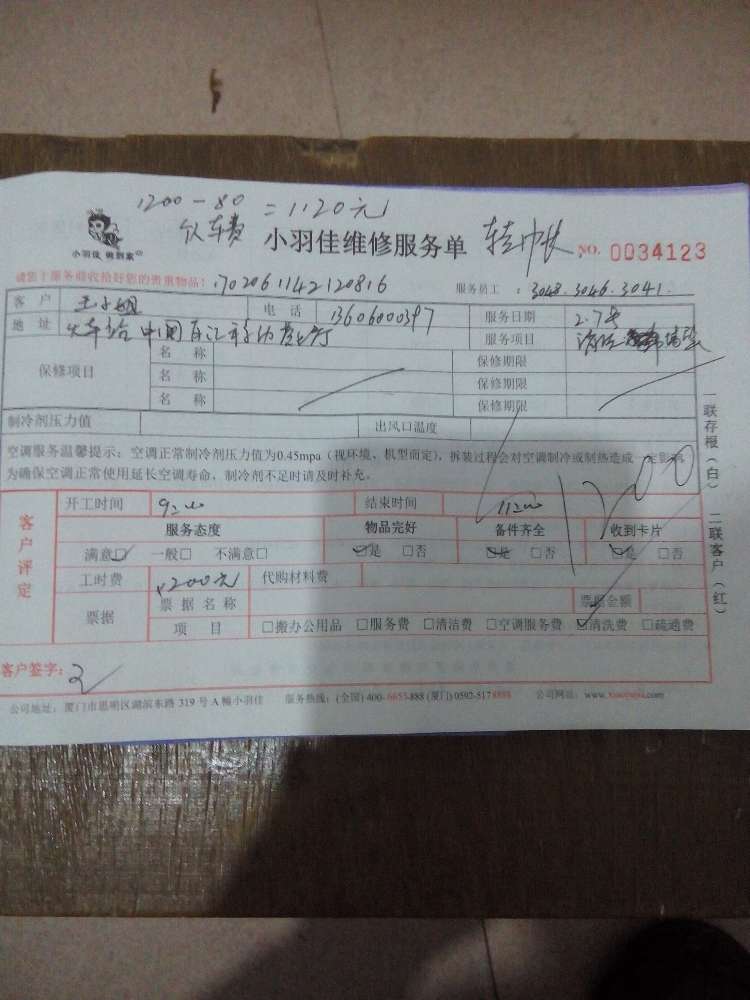 1200-80=1120元
小羽佳 到家
小羽佳维修服务单 NO. 0034123
1702061142120816
服务员工：3048.3046.3041.
客户 王小姐 电话 13606000397 服务日期 2.7
地址 火车站中国 服务项目 清洗
保修项目 名称 保修期限
名称 保修期限
名称 保修期限
制冷剂压力值 出风口温度
空调服务温馨提示：空调正常制冷剂压力值为0.45mpa（视环境、机型而定），拆装过程会对空调制冷或制热造成一定影响
为确保空调正常使用延长空调寿命，制冷剂不足时请及时补充。
1200
客户评定
开工时间 920 结束时间 1120
服务态度 物品完好 备件齐全 收到卡片
满意☑ 一般□ 不满意□ ☑是 □否 ☑是 □否 ☑是 □否
工时费 1200元 代购材料费
票据 票据名称 票据金额
项目 □搬办公用品 □服务费 □清洁费 □空调服务费 ☑清洗费 □疏通费
客户签字：
公司地址：厦门市思明区湖滨东路 319 号 A 幢小羽佳 服务热线：(全国) 400-6653-888 (厦门) 0592-5178888 公司网站：www.xiaoyujia.com
一联存根（白） 二联客户（红）